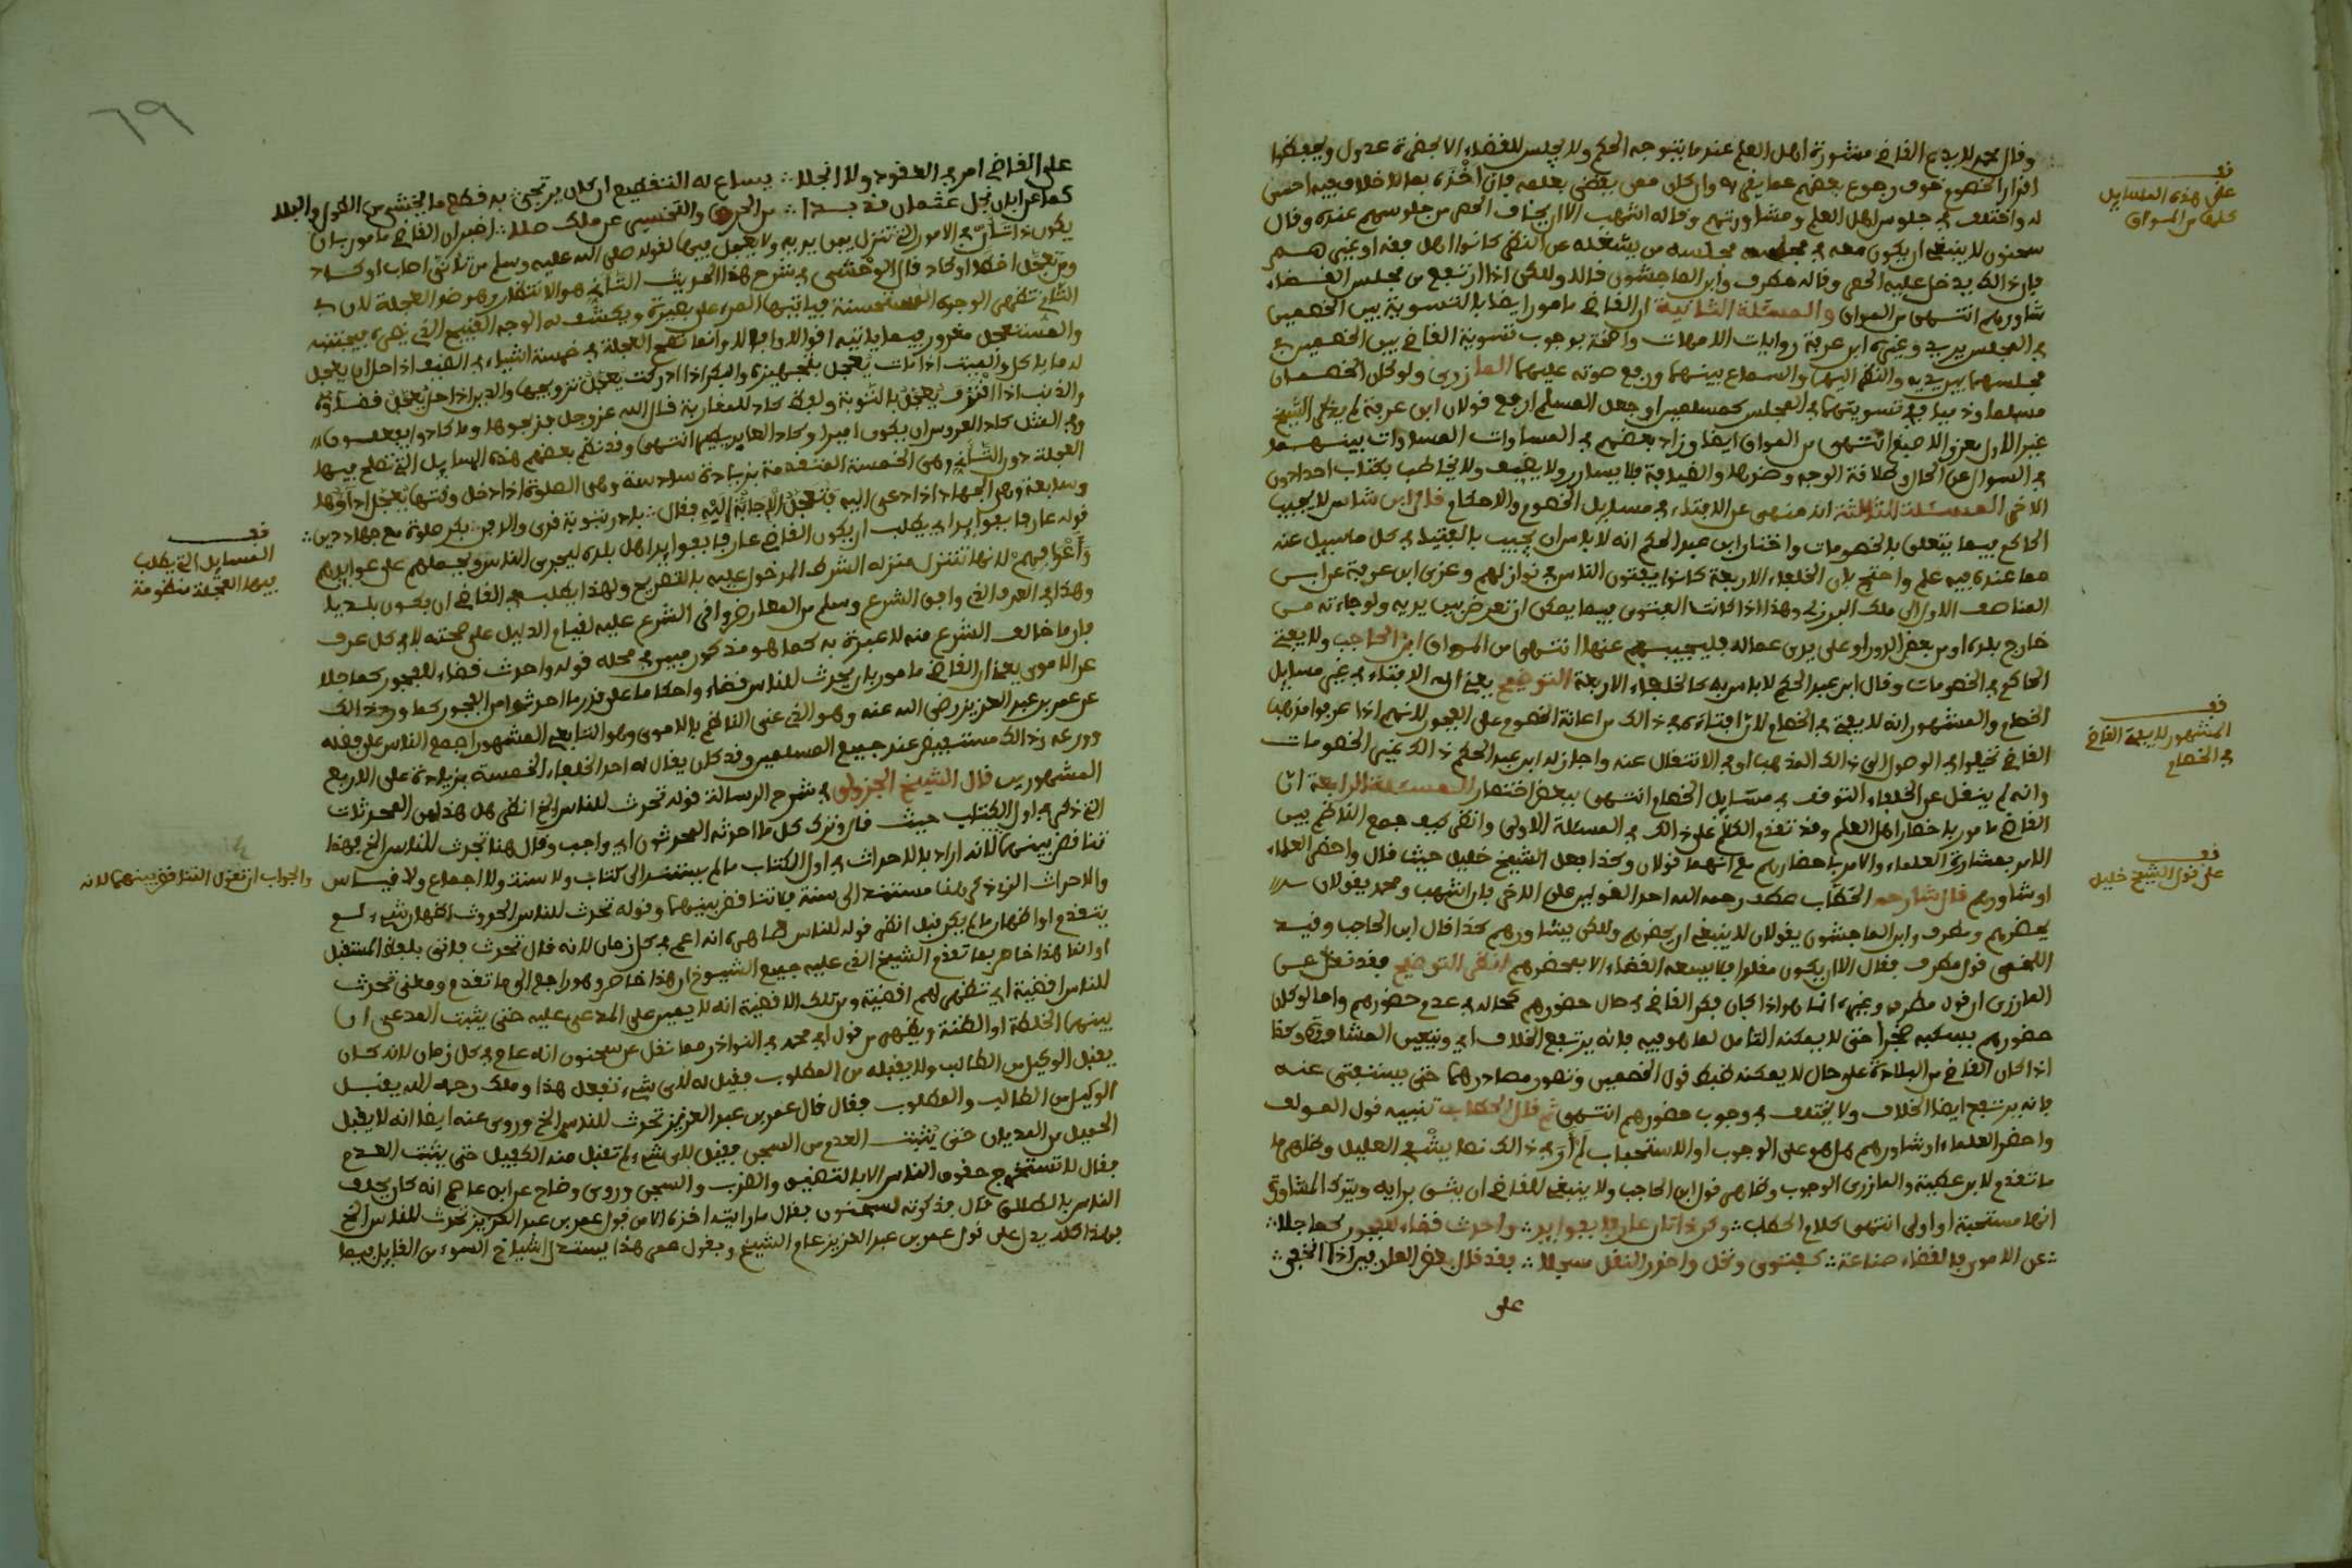 وقال محمد لا يدع القاضي مشورة اهل العلم عندما يتوجه الحكم ولا يجلس للقضاء الا بحضرة عدول ويحفظوا
اقرار الخصوم خوف رجوع بعضهم عما يقر به وان كان ممن يقضي بعلمه فان اخذه بما لا خلاف فيه احسن
له واختلف في جلوس اهل العلم ومشاورتهم وقاله اشهب الا ان يخاف الحصر من جلوسهم عنده وقال
سحنون لا ينبغي ان يكون معه في مجلسه من يشغله عن النظر كانوا اهل فقه او غيرهم
فان ذالك يدخل عليه الحصر وقاله مطرف وابن الماجشون قالا ولكن اذا ارتفع من مجلس القضاء
شاورهم انتهى من المواق والمسئلة الثانية ان القاضي مامور ايضا بالتسوية بين الخصمين
في المجلس بين يديه وغيره ابن عرفة روايات الامهات واضحة بوجوب تسوية القاضي بين الخصمين في
مجلسهما بين يديه والنظر اليهما والسماع بينهما ورفع صوته عليهما المازري ولو كان الخصمان
مسلما وذميا في تسويتهما في المجلس كمسلمين او جعل المسلم ارفع قولان ابن عرفة لم يذكر الشيخ
غير الاول بعزو لاصبغ انتهى من المواق ايضا وزاد بعضهم في المساوات المساوات بينهما
في السوال عن الحال وطلاقة الوجه وضدها والضيافة فلا يسارر ولا يضيف ولا يخاطب بكتاب احدا دون
الاخر المسئلة الثالثة انه منهى عن الافتاء في مسايل الخصوم والاحكام قال ابن شاس لا يجيب
الحاكم فيما يتعلق بالخصومات واختار ابن عبد الحكم انه لا باس ان يجيب بالفتيا في كل ما سيل عنه
مما عنده فيه علم واحتج بان الخلفاء الاربعة كانوا يفتون الناس في نوازلهم وعزى ابن عرفة عن ابن
المناصف الاول الى ملك البرزلي وهذا اذا كانت الفتوى فيما يمكن ان تعرض بين يديه ولو جاءته من
خارج بلده او من بعض الدور او على يدي عماله فليجيبهم عنها انتهى من المواق ابن الحاجب ولا يفتي
الحاكم في الخصومات وقال ابن عبد الحكم لا باس به كالخلفاء الاربعة التوضيح يعني ان له الافتاء في غير مسايل
الخصام والمشهور انه لا يفتي في الخصام لان افتاءه في ذالك من اعانة الخصوم على الفجور لانهم اذا عرفوا مذهب
القاضي تحيلوا في الوصول الى ذالك المذهب او في الانتقال عنه واجاز له ابن عبد الحكم ذالك في غير الخصومات
وانه لم ينقل عن الخلفاء التوقف في مسايل الخصام انتهى ببعض اختصار المسئلة الرابعة ان
القاضي مامور باحضار اهل العلم وقد تقدم الكلام على ذالك في المسئلة الاولى وانظر كيف جمع الناظم بين
الامر بمشاورة العلماء والامر باحضارهم مع انهما قولان وكذا فعل الشيخ خليل حيث قال واحضر العلماء
او شاورهم قال شارحه الحطاب رحمه الله احد القولين على الاخر فان اشهب ومحمد يقولان
يحضرهم ومطرف وابن الماجشون يقولان لا ينبغي ان يحضرهم ولكن يشاورهم كذا قال ابن الحاجب وقيد
اللخمي قول مطرف فقال الا ان يكون مقلدا فلا يسعه القضاء الا بمحضرهم انظر التوضيح فقد نقل عن
المازري ان قول مطرف وغيره انما هو اذا كان فكر القاضي في حال حضورهم كحاله في عدم حضورهم واما لو كان
حضورهم يكسبه ضجرا حتى لا يمكنه التامل لما هو فيه فانه يرتفع الخلاف اي ويتعين المشاورة وكذا
اذا كان القاضي من البلادة على حال لا يمكنه ضبط قول الخصمين وتصور مصادرهما حتى يستفتى عنه
فانه يرتفع ايضا الخلاف ولا يختلف في وجوب حضورهم انتهى ثم قال الحطاب تنبيه قول المولف
واحضر العلماء او شاورهم هل هو على الوجوب او الاستحباب لم ار في ذالك نصا يشفي العليل وظاهر ما
ما تقدم لابن عطية والمازري الوجوب وظاهر قول ابن الحاجب ولا ينبغي للقاضي ان يثق برايه ويترك المشاورة
انها مستحبة او اولى انتهى كلام الحطاب وكن ذا تان عارفا بعوايد واحدث قضاء لفجور كما جلا
عن الاموي فالقضاء صناعة كفتوى ونحل واحذر النقل مسجلا فقد قال بعض العارفين اذا انخفى
على
قف
على هذه المسايل
كلها من المواق
قف
المشهور لا يفتي القاضي
في الخصام
قف
على قول الشيخ خليل
٦٩
على القاضي امر في العقود ولا انجلا يساع له التقطيع ان كان يرتجى به قطع ما يخشى من القول في البلد
كما عن ابان نجل عثمان قد بدا من الحرق والتخسير عن ملك صلا اخبر ان القاضي مامور بان
يكون ذا تان في الامور التي تنزل بين يديه ولا يعجل فيها لقوله صلى الله عليه وسلم من تانى اصاب او كاد
ومن تعجل اخطا او كاد قال الوخشي في شرح هذا الحديث التاني هو الانتظار وهو ضد العجلة لان في
التاني تظهر الوجوه المستحسنة فياتيها المرء على بصيرة ويكشف له الوجه القبيح الذي يضره فيجتنبه
والمستعجل مغرور فيما ياتيه اقوال وانما تصح العجلة في خمسة اشياء في الضيف اذا حل ان يعجل
له ما ياكل والميت اذا مات يعجل بتجهيزه والبكر اذا ادركت يعجل تزويجها والدين اذا حل يعجل قضاؤه
والذنب اذا اقترف يعجل بالتوبة ولفظ كاد للمقاربة قال الله عز وجل فذبحوها وما كادوا يفعلون
وفي المثل كاد العروس ان يكون اميرا وكاد انتهى وقد نظم بعضهم هذه المسايل التي تصلح فيها
العجلة دون التاني وهي الخمسة المتقدمة بزيادة سادسة وهي الصلوة اذا دخل وقتها يعجل اداؤها
وسابعة وهي الجهاد اذا دعي اليه فتعجل الاجابة اليه فقال بادر بتوبة قرى والدفن بكر صلوة مع جهاد دين
قوله عارفا بعوايد اي يطلب ان يكون القاضي عارفا بعوايد اهل بلده ليجري الناس ويحملهم على عوايدهم
واعرافهم لانها تتنزل منزلة الشرط المدخول عليه بالتصريح ولهذا يطلب في القاضي ان يكون بلديا
وهذا في العرف الذي وافق الشرع وسلم من المعارض وافى الشرع عليه لقيام الدليل على صحته لا في كل عرف
فان ما خالف الشرع منه لا عبرة به كما هو مذكور مبين في محله قوله واحدث قضاء لفجور كما جلا
عن الاموي يعني ان القاضي مامور بان يحدث للناس قضاء واحكاما على قدر ما احدثوا من الفجور كما ورد ذالك
عن عمر بن عبد العزيز رضي الله عنه وهو الذي عنى الناظم بالاموي وهو التابعي المشهور اجمع الناس على فضله
وورعه وذالك مستفيض عند جميع المسلمين وقد كان يقال له احد الخلفاء الخمسة بزيادة على الاربع
المشهورين قال الشيخ الجزولي في شرح الرسالة قوله تحدث للناس الخ انظر هل هذا من المحدثات
التي ذكر في اول الكتاب حيث قال وترك كل ما احدثه المحدثون اي واجب وقال هنا تحدث للناس الخ فهذا
تناقض بينهما لانه اراد بالاحداث في اول الكتاب ما لم يستند الى كتاب ولا سنة ولا اجماع ولا قياس
والاحداث الذي ذكر هنا مستند الى سنة فلا تناقض بينهما وقوله تحدث للناس الحدوث اظهار شيء لم
يتقدم او اظهار ما لم يكن قبل انظر قوله للناس ظاهره انه اعم في كل زمان لانه قال تحدث فاتى بلفظ المستقبل
او انما هذا خاص بما تقدم الشيخ الذي عليه جميع الشيوخ ان هذا خاص وهو راجع الى ما تقدم ومعنى تحدث
للناس اقضية اي تظهر لهم اقضية ومن تلك الاقضية انه لا يمين على المدعى عليه حتى يثبت المدعي ان
بينهما الخلطة او الظنة ويظهر من قول ابي محمد في النوادر مما نقل عن سحنون انه عام في كل زمان لانه كان
يقبل الوكيل من الطالب ولا يقبله من المطلوب فقيل له لاي شيء تفعل هذا وملك رحمه الله يقبل
الوكيل من الطالب والمطلوب فقال قال عمر بن عبد العزيز تحدث للناس الخ وروي عنه ايضا انه لا يقبل
الحميل من المديان حتى يثبت العدم من السجن فقيل لاي شيء لم تقبل منه الكفيل حتى يثبت العدم
فقال لا تستخرج حقوق الناس الا بالتضييق والضرب والسجن وروى وضاح عن ابن عاصم انه كان يحلف
الناس بالطلاق قال فذكرته لسحنون فقال ما رايته اخذه الا من قول عمر بن عبد العزيز تحدث للناس الخ
فهذا كله يدل على قول عمر بن عبد العزيز عام الشيخ ويقول معنى هذا يستدل اشياخ السوء من القايل فيها
قف
المسايل التي يطلب
فيها العجلة منظومة
والجواب ان نقول التناقض بينهما لانه